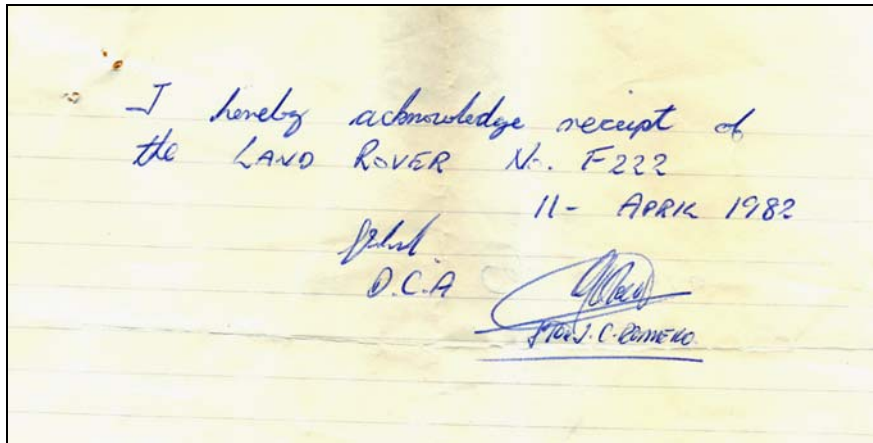 I hereby acknowledge receipt of
the LAND ROVER No. F222
11- APRIL 1982
D.C.A
J. C. ROMERO